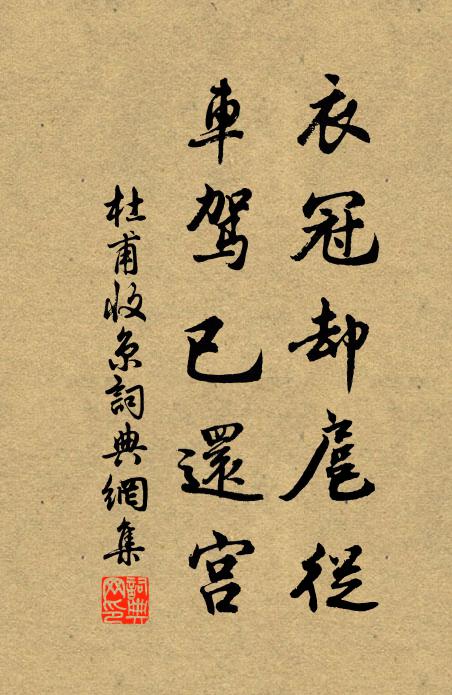 衣冠却扈從
車駕已還宫
杜甫收京詞典網集
詞典网印